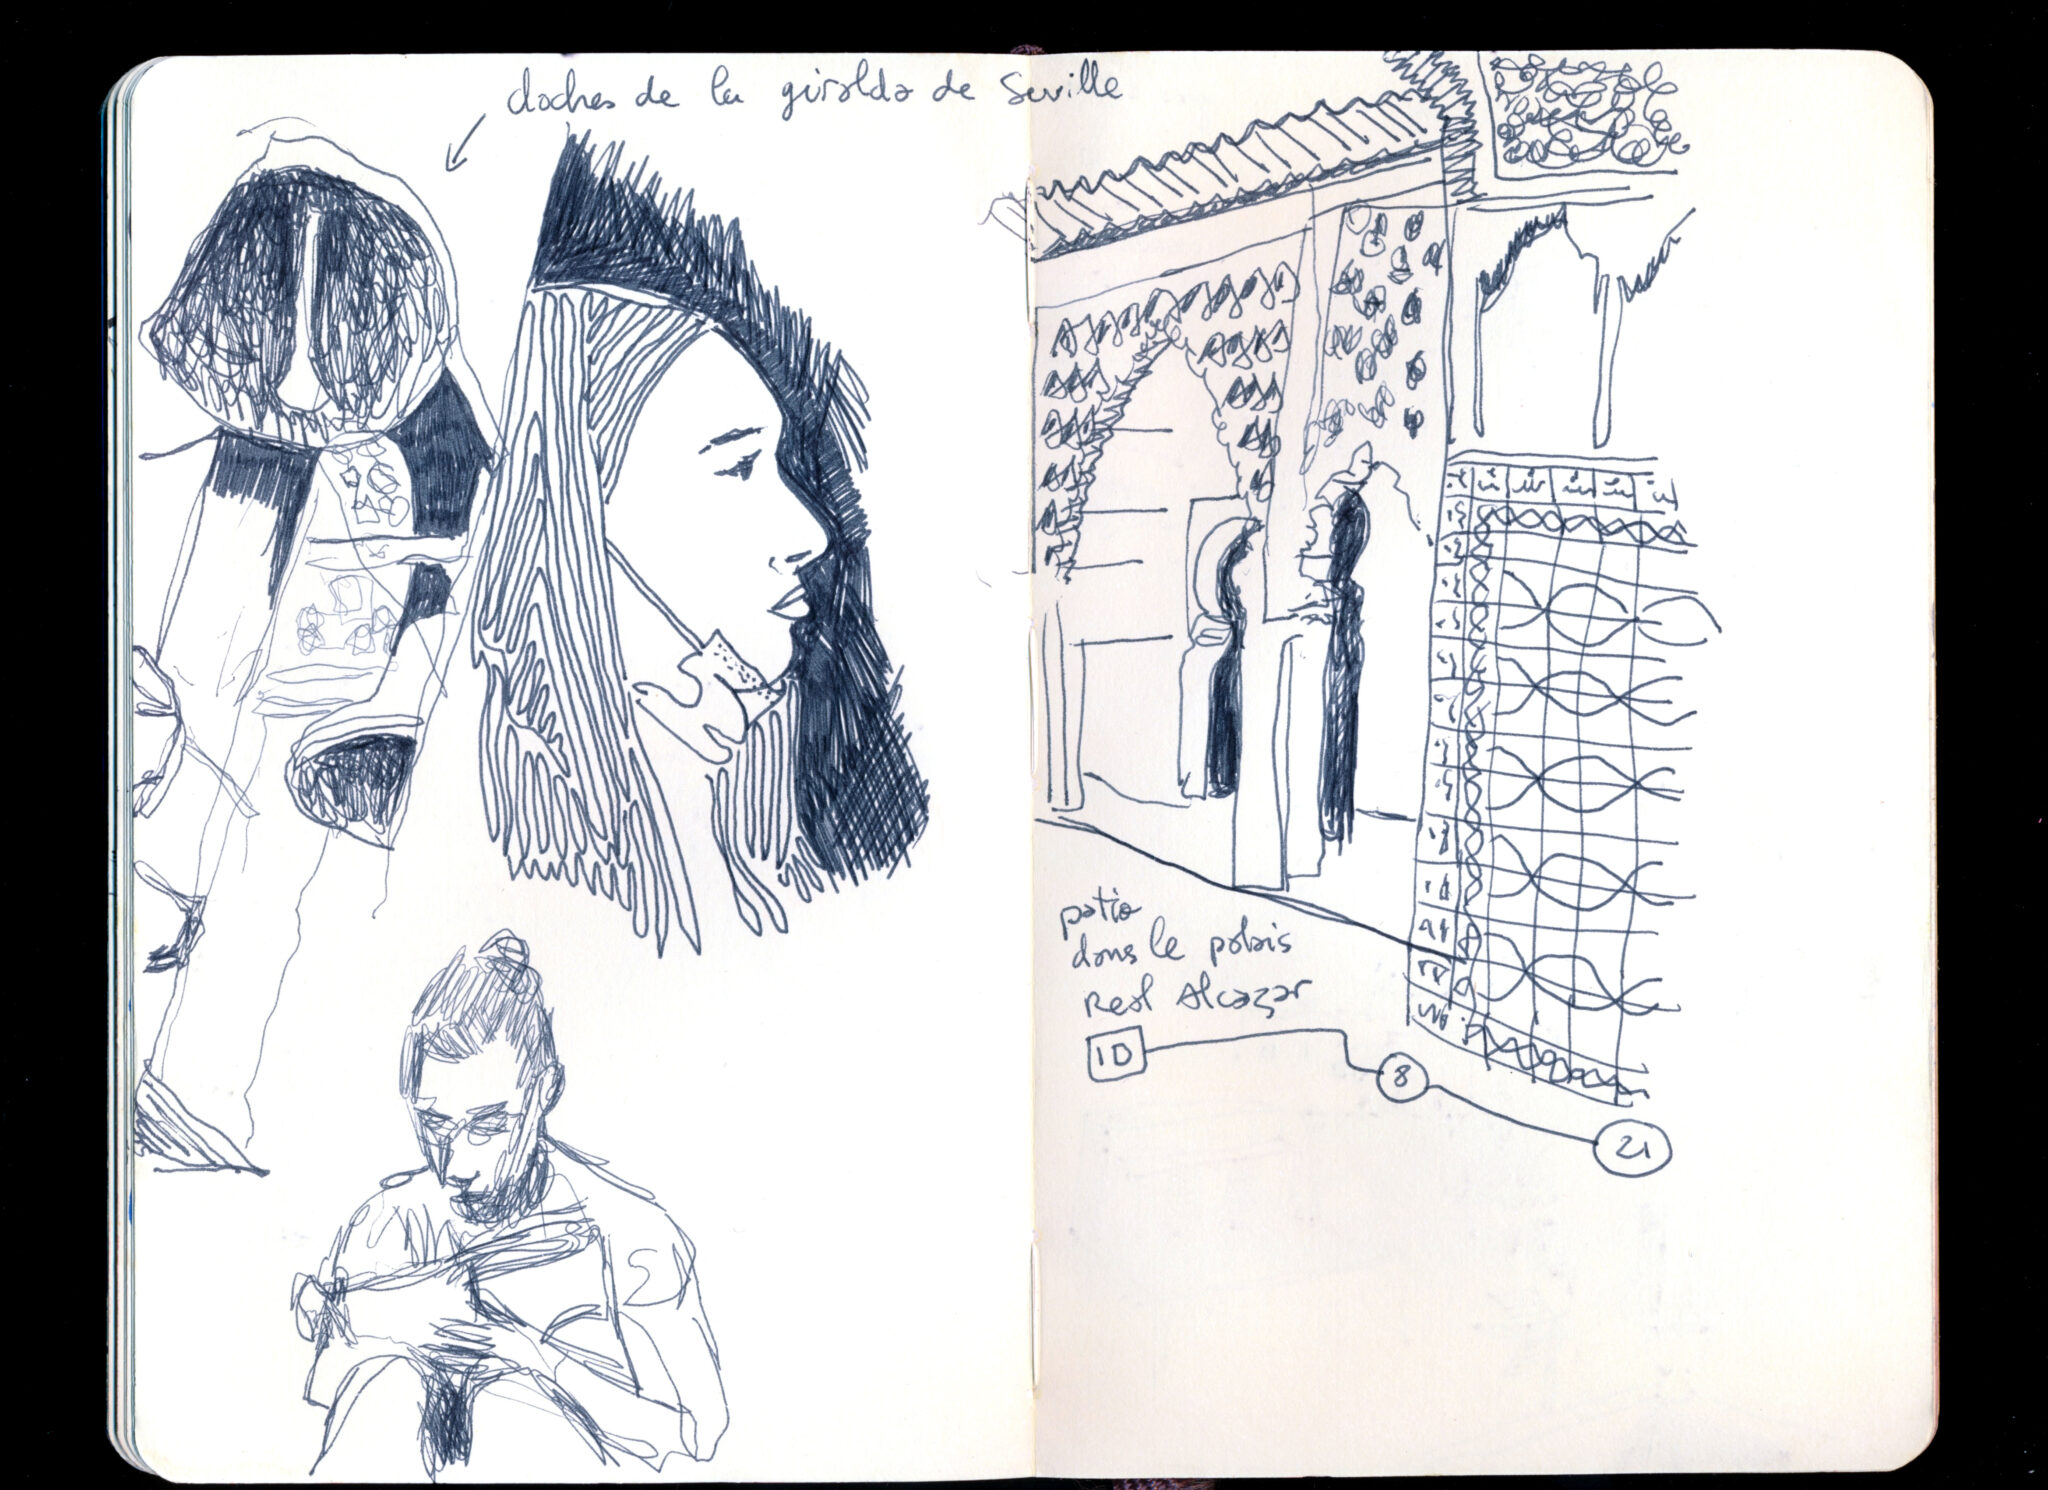 cloches de la giralda de Seville
patio
dans le palais
Real Alcazar
10
8
21